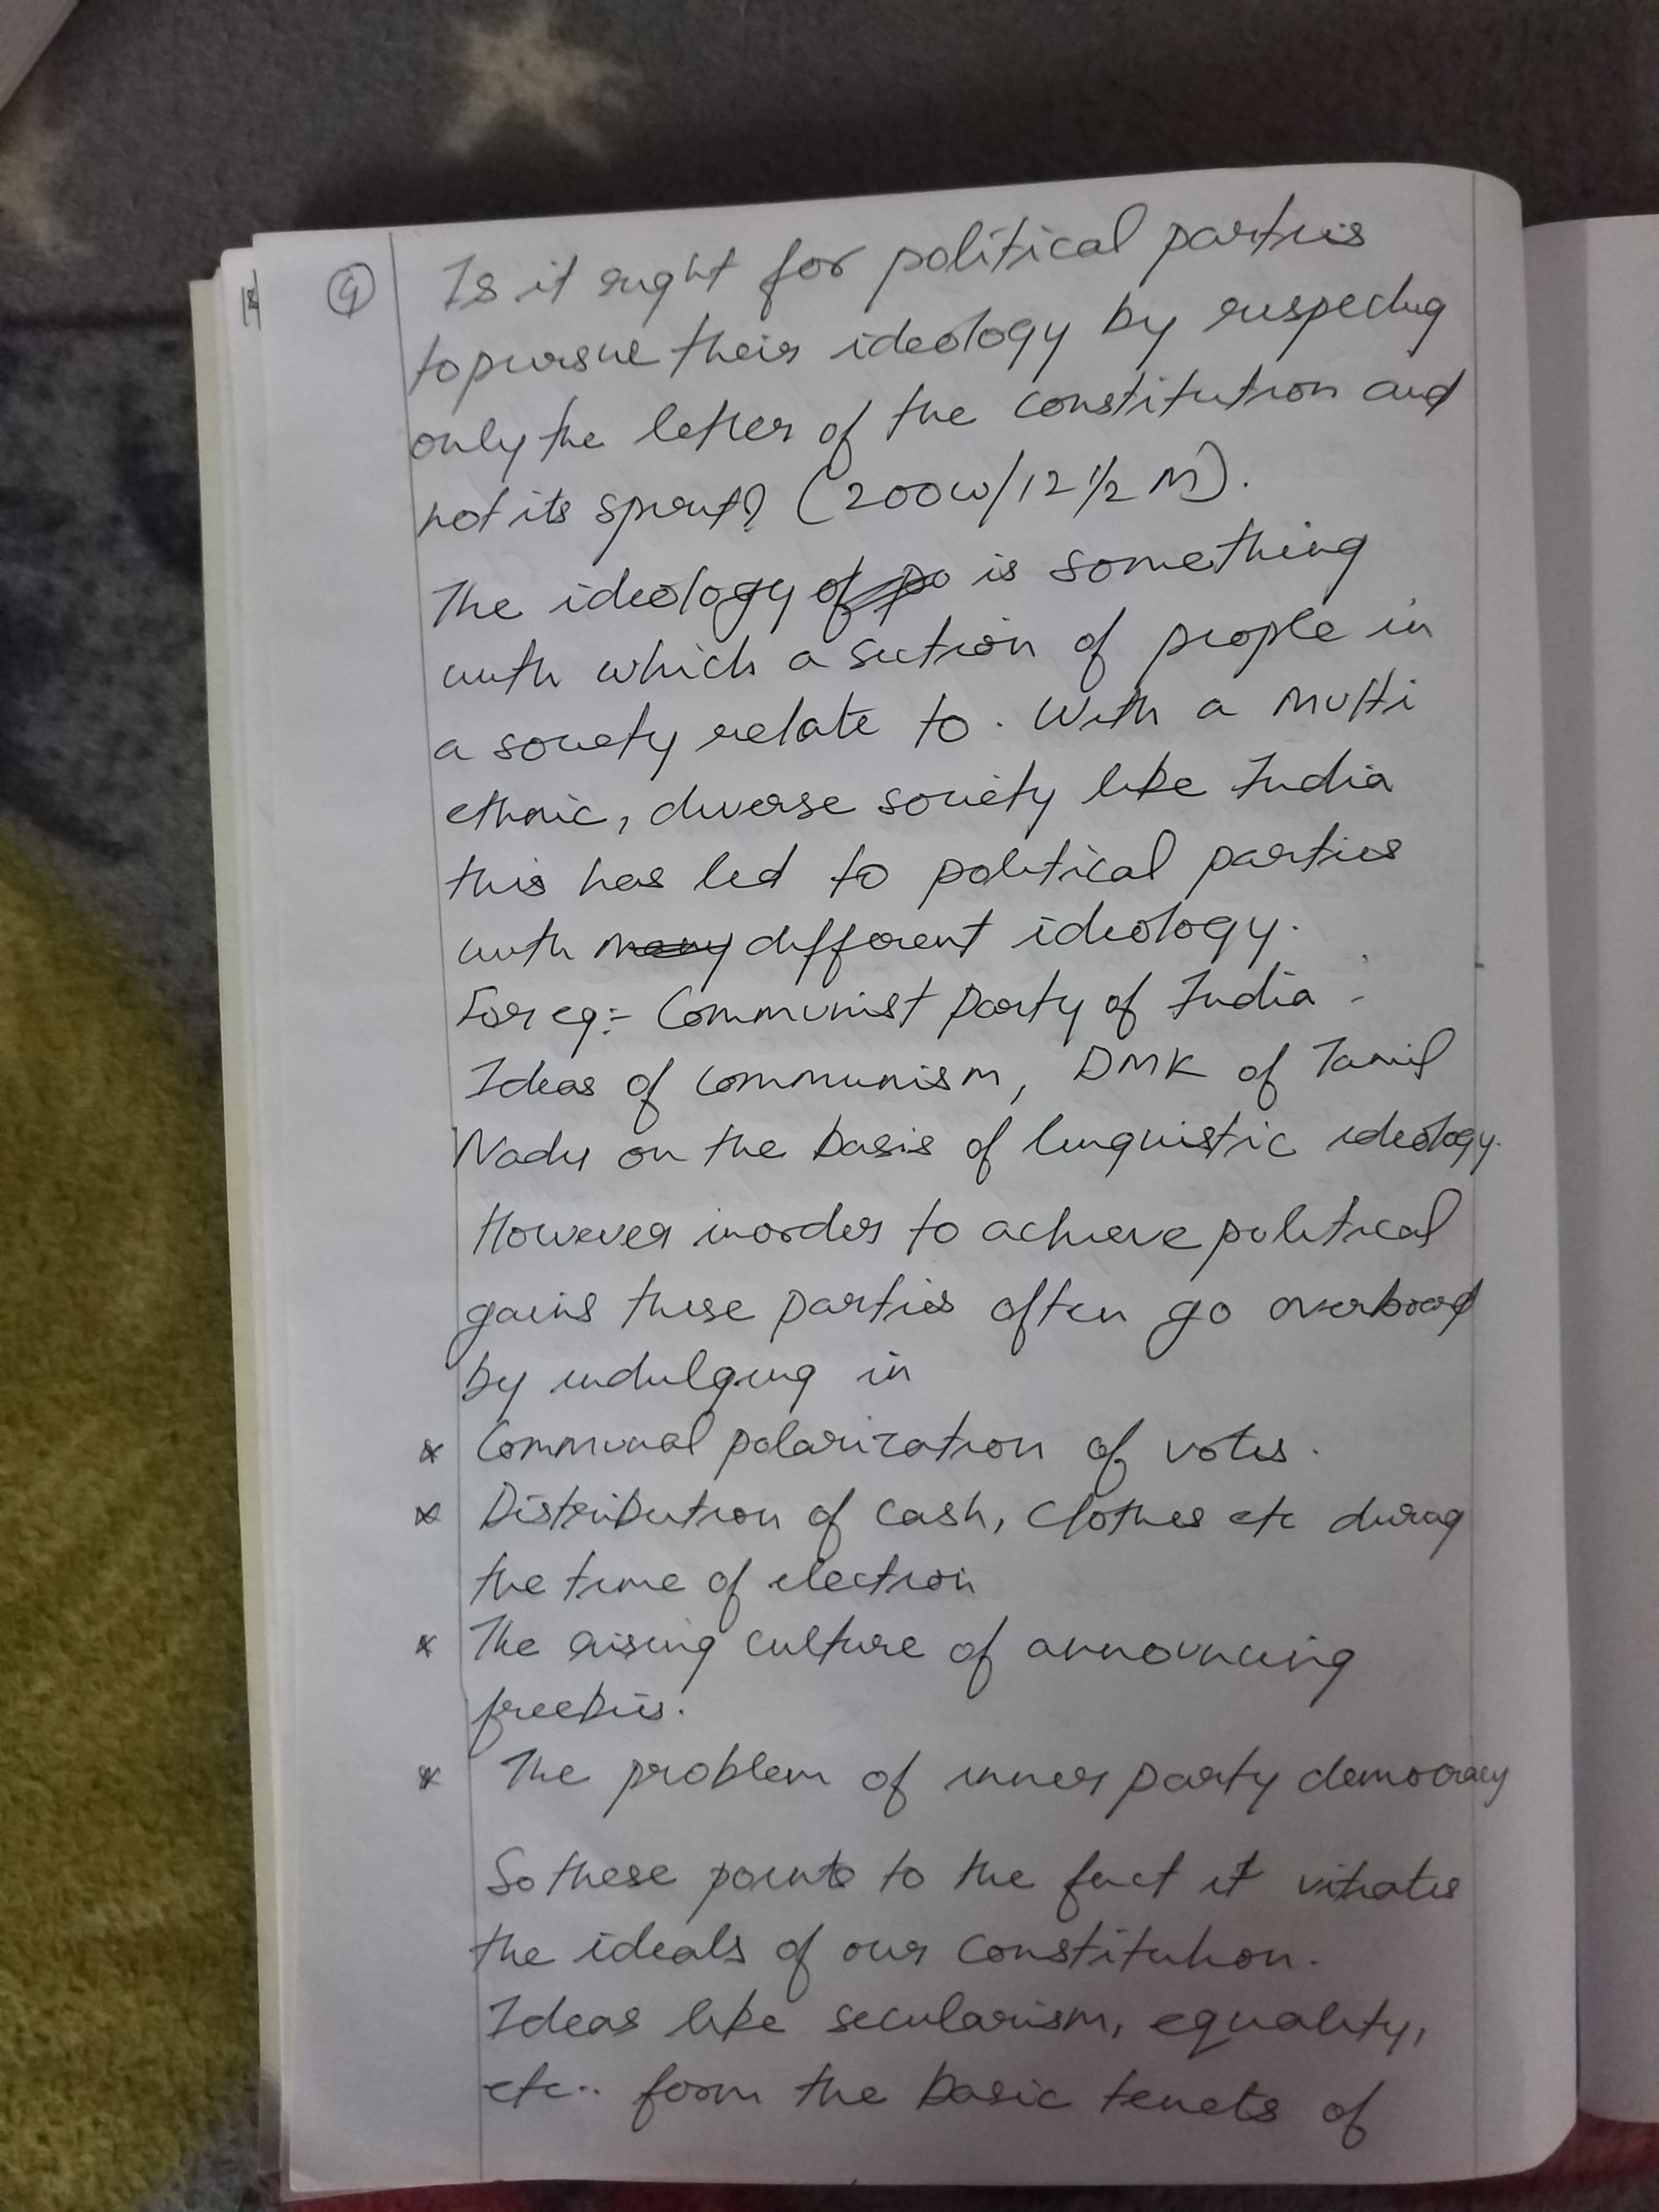 Q Is it right for political parties
to pursue their ideology by respecting
only the letter of the constitution and
not its spirit? (200w/12 1/2 M).
The ideology of po is something
with which a section of people in
a society relate to. With a multi
ethnic, diverse society like India
this has led to political parties
with many different ideology.
For eg:- Communist Party of India -
Ideas of communism, DMK of Tamil
Nadu on the basis of linguistic ideology.
However inorder to achieve political
gains these parties often go overboard
by indulging in
* Communal polarization of votes.
* Distribution of cash, clothes etc during
the time of election
* The rising culture of announcing
freebies.
* The problem of inner party democracy
So these points to the fact it vitiates
the ideals of our constitution.
Ideas like secularism, equality,
etc.. form the basic tenets of